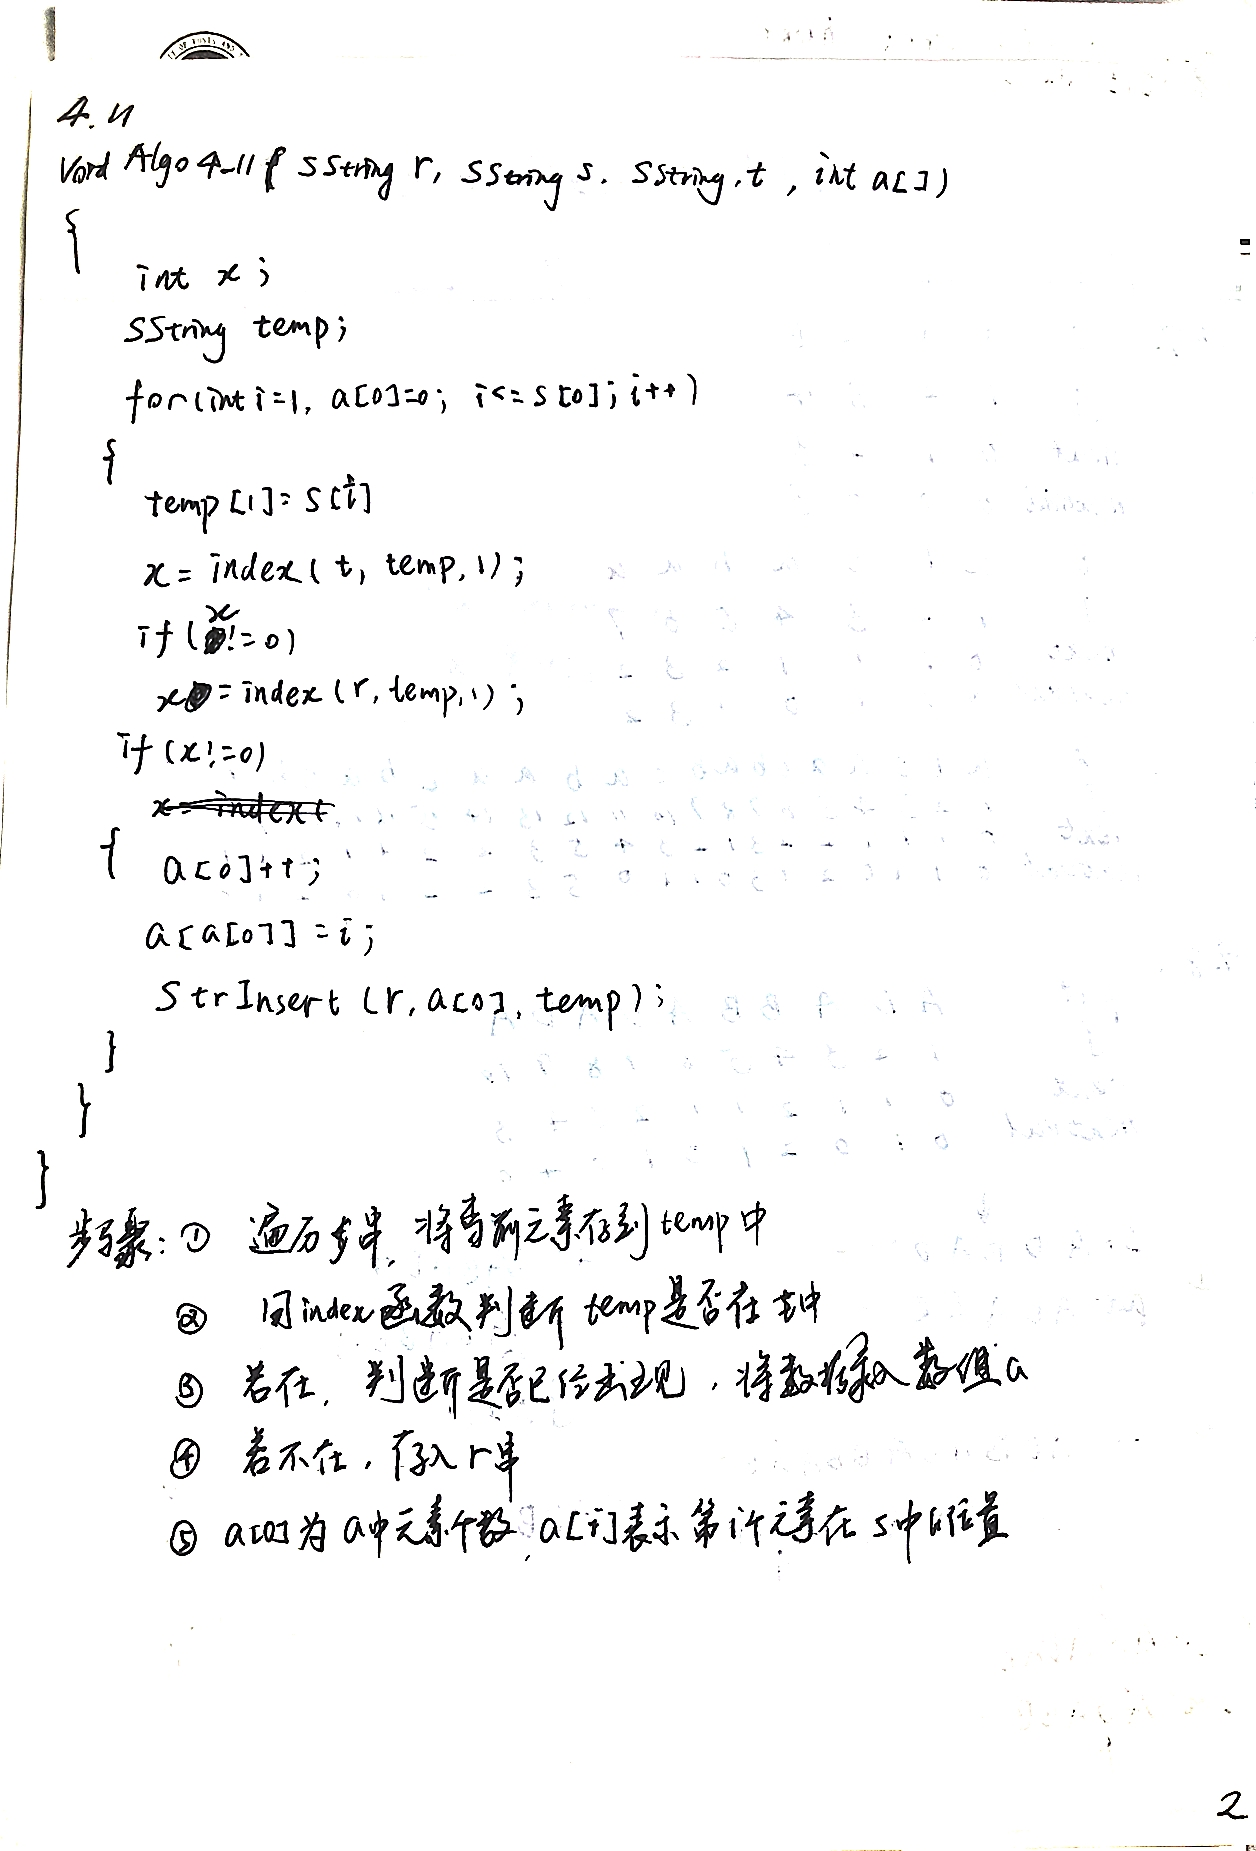 OF POSTS AND
4.11
Void Algo4-11( SString r, SString s. SString.t , int a[])
{
int x ;
SString temp;
for(int i=1, a[0]=0; i<=s[0]; i++)
{
temp[1]=s[i]
x = index( t, temp,1) ;
if(x!=0)
x=index(r, temp,1) ;
if(x!=0)
x=index(
{ a[0]++;
a[a[0]] = i;
StrInsert (r, a[0], temp);
}
}
}
步骤: ① 遍历s串, 将当前元素存到temp中
② 用index函数判断temp是否在t中
③ 若在, 判断是否已经出现, 将数据录入数组a
④ 若不在, 存入r串
⑤ a[0]为a中元素个数, a[i]表示第i个元素在s中的位置
2